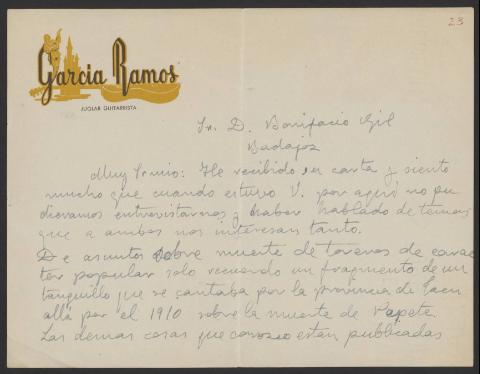 23
García Ramos
JUGLAR GUITARRISTA
Sr. D. Bonifacio Gil
Badajoz
Muy Sr mio: He recibido su carta y siento
mucho que cuando estuvo V. por aquí no pu
dieramos entrevistarnos y haber hablado de temas
que a ambos nos interesan tanto.
De asuntos sobre muerte de toreros de carac
ter popular solo recuerdo un fragmento de un
tanguillo que se cantaba por la provincia de Jaen
allá por el 1910 sobre la muerte de Pepete
Las demas cosas que conozco estan publicadas